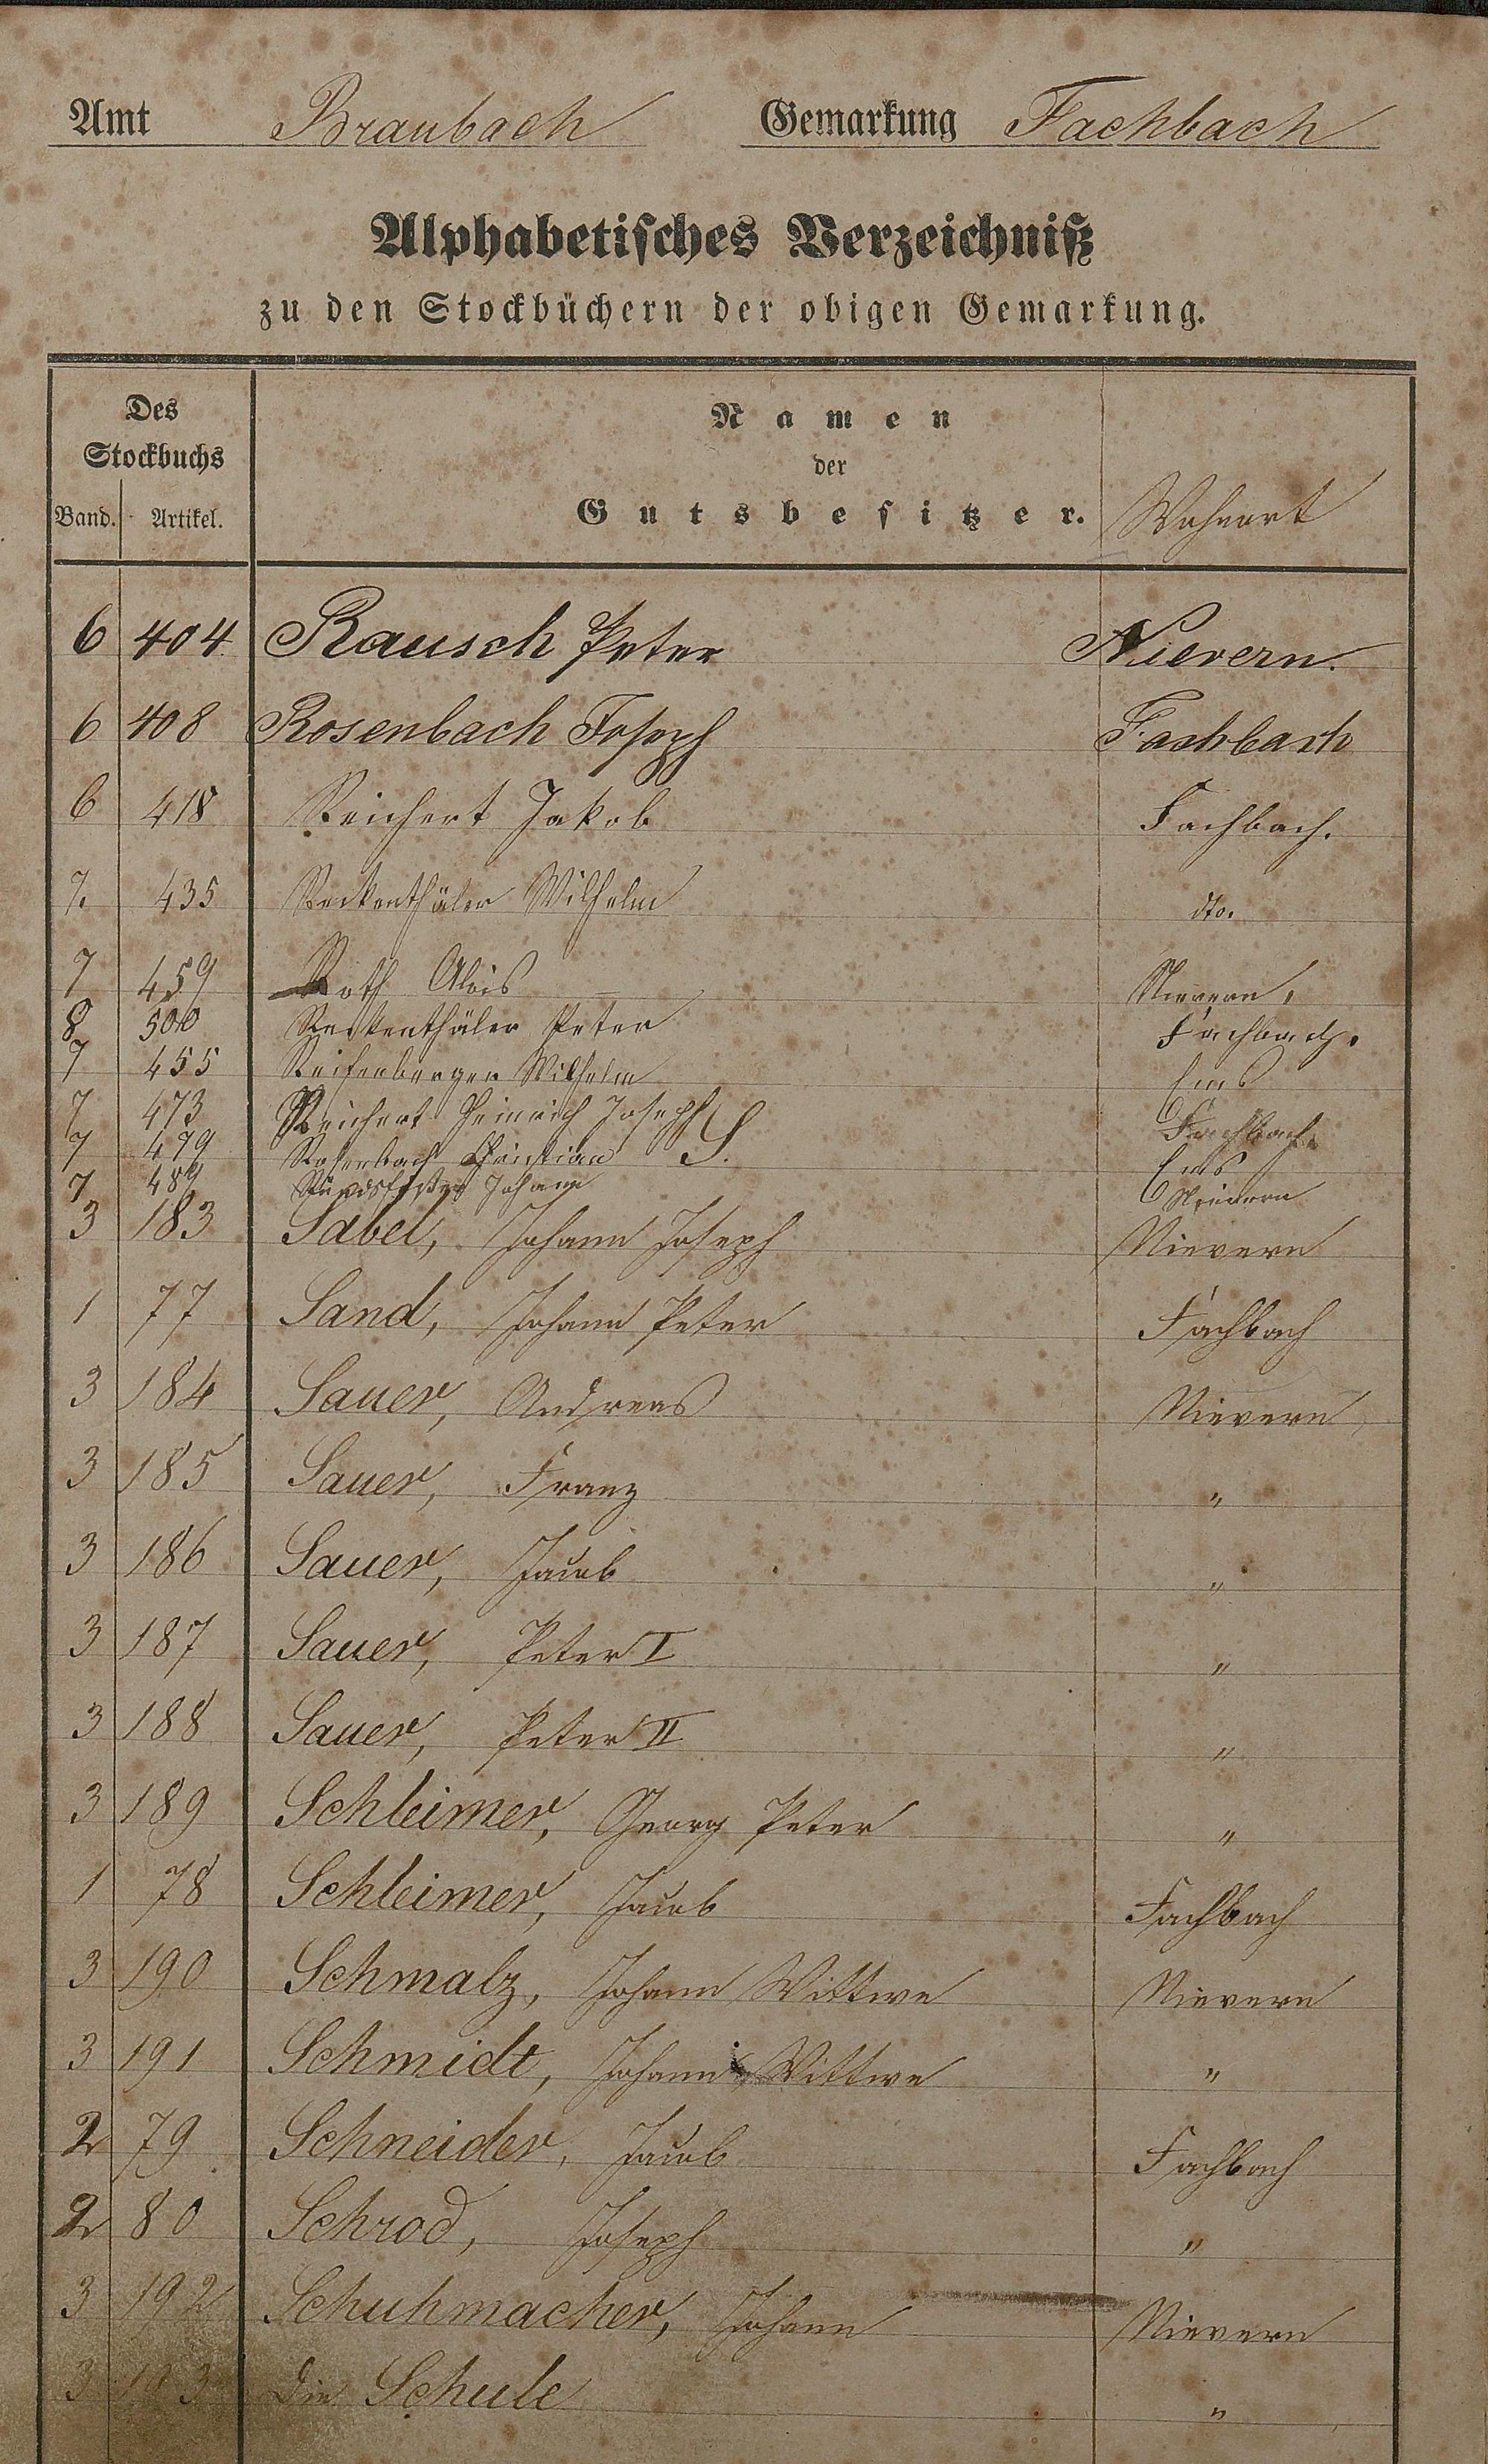 Amt Braubach Gemarkung Fachbach
Alphabetisches Verzeichniß
zu den Stockbüchern der obigen Gemarkung.
Des
Stockbuchs
Band. Artikel.
Namen
der
Gutsbesitzer. Wohnort
6 404 Rausch Peter Nievern.
6 408 Rosenbach Joseph Fachbach
6 418 Reichert Jakob Fachbach.
7. 435 Reckenthäler Wilhelm dto.
7 459 Roth Alois Nievern,
8 500 Reckenthäler Peter Fachbach.
7 455 Reifenberger Wilhelm Ems
7 473 Reichert Heinrich Joseph Fachbach
7 479 Rosenbach Christian Ems
S.
7 489 Johann Nievern
3 183 Sabel, Johann Joseph Nievern
1 77 Sand, Johann Peter Fachbach
3 184 Sauer, Andreas Nievern
3 185 Sauer, Franz "
3 186 Sauer, Jacob "
3 187 Sauer, Peter I "
3 188 Sauer, Peter II "
3 189 Schleimer, Georg Peter "
1 78 Schleimer, Jacob Fachbach
3 190 Schmalz, Johann Wittwe Nievern
3 191 Schmidt, Johann Wittwe "
2 79 Schneider, Jacob Fachbach
2 80 Schrod, Joseph "
3 192 Schuhmacher, Johann Nievern
3 193 Die Schule "